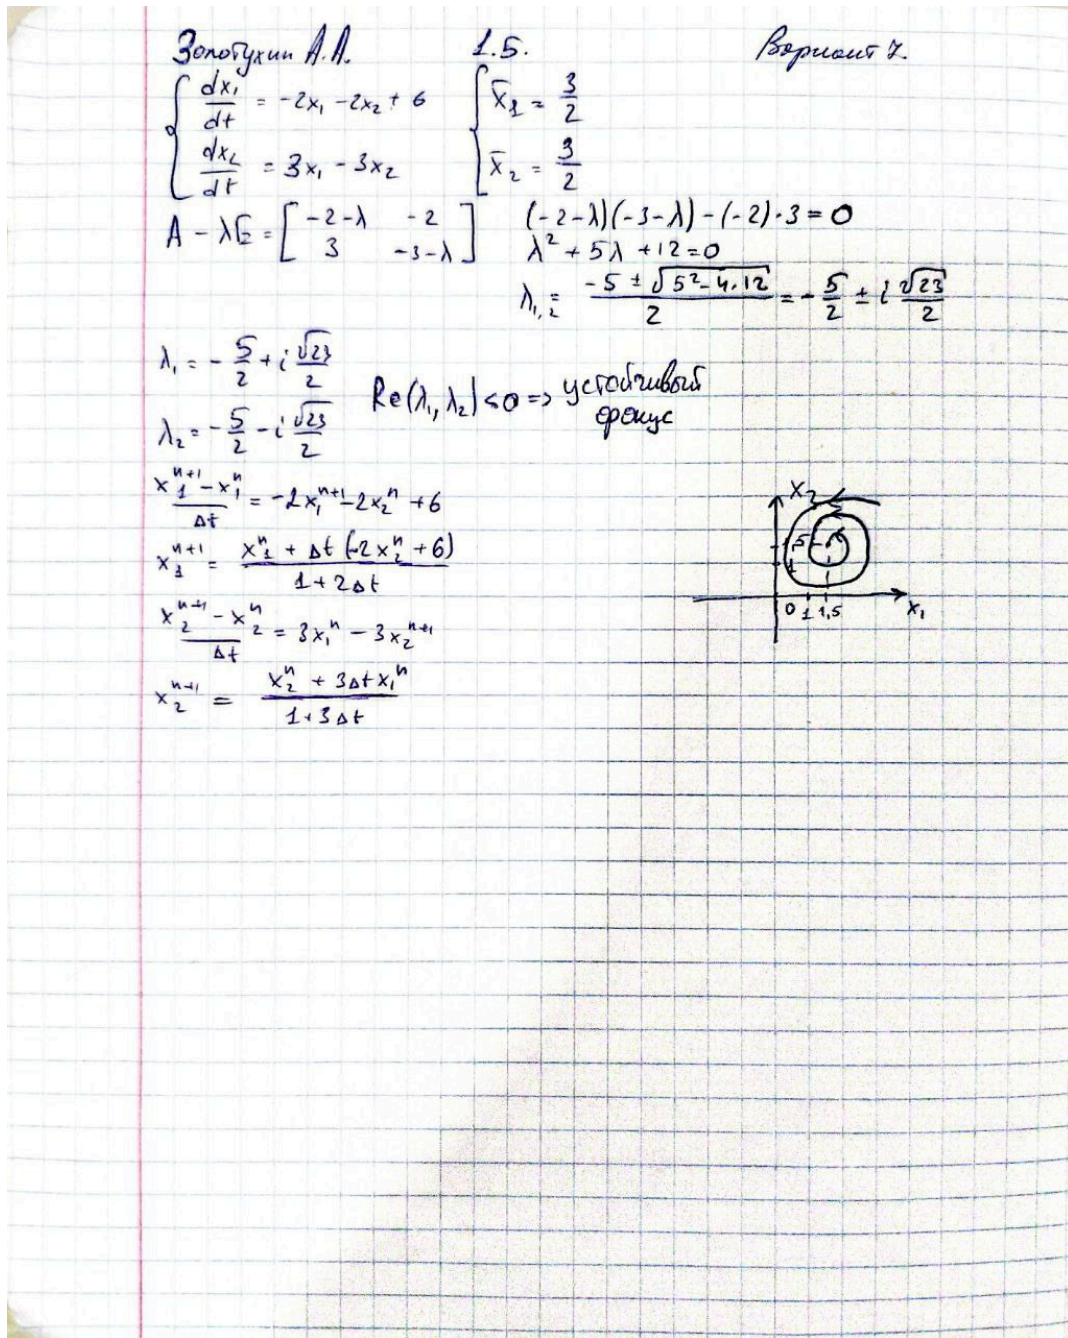 Золотухин А.А. 1.5. Вариант 7.
dx₁/dt = -2x₁ - 2x₂ + 6   x̄₁ = 3/2
dx₂/dt = 3x₁ - 3x₂   x̄₂ = 3/2
A - λE = [ -2-λ  -2 ; 3  -3-λ ]   (-2-λ)(-3-λ) - (-2)·3 = 0
λ² + 5λ + 12 = 0
λ₁,₂ = (-5 ± √(5² - 4·12))/2 = -5/2 ± i √23/2
λ₁ = -5/2 + i √23/2
Re(λ₁, λ₂) < 0 => устойчивый
фокус
λ₂ = -5/2 - i √23/2
(x₁ⁿ⁺¹ - x₁ⁿ)/Δt = -2x₁ⁿ⁺¹ - 2x₂ⁿ + 6
x₁ⁿ⁺¹ = (x₁ⁿ + Δt(-2x₂ⁿ + 6))/(1 + 2Δt)
(x₂ⁿ⁺¹ - x₂ⁿ)/Δt = 3x₁ⁿ - 3x₂ⁿ⁺¹
x₂ⁿ⁺¹ = (x₂ⁿ + 3Δt x₁ⁿ)/(1 + 3Δt)
x₂
1,5
1
0 1 1,5 x₁